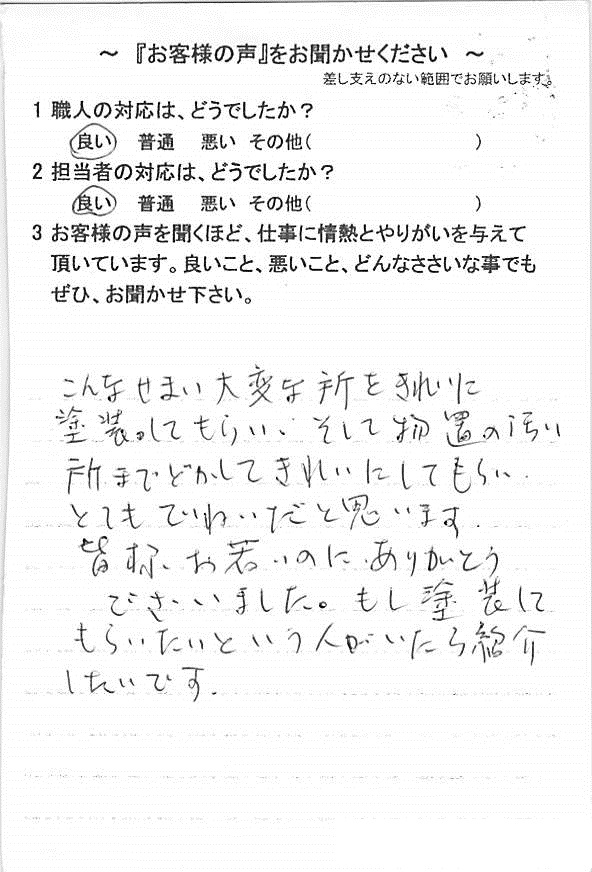 ～ 『お客様の声』をお聞かせください ～
差し支えのない範囲でお願いします。
1 職人の対応は、どうでしたか？
良い 普通 悪い その他( )
2 担当者の対応は、どうでしたか？
良い 普通 悪い その他( )
3 お客様の声を聞くほど、仕事に情熱とやりがいを与えて
頂いています。良いこと、悪いこと、どんなささいな事でも
ぜひ、お聞かせ下さい。
こんなせまい大変な所をきれいに
塗装してもらい、そして物置の汚い
所までどかしてきれいにしてもらい
とてもていねいだと思います。
皆様、お若いのに、ありがとう
ございました。もし塗装して
もらいたいという人がいたら紹介
したいです。